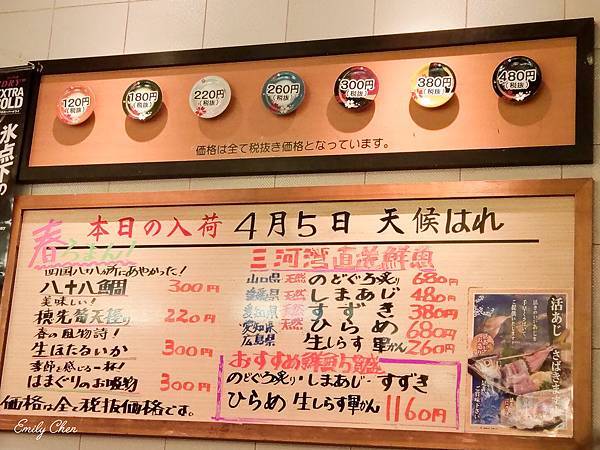 120円
(税抜)
180円
(税抜)
220円
(税抜)
260円
(税抜)
300円
(税抜)
380円
(税抜)
480円
(税抜)
価格は全て税抜き価格となっています。
EXTRA
COLD
氷点下の
本日の入荷 4月5日 天候はれ
春らまん!!
四国八十八ヶ所にあやかった!
八十八鯛 300円
美味しい!
穂先筍天握り 220円
春の風物詩!
生ほたるいか 300円
季節を感じる一杯!
はまぐりのお吸物 300円
価格は全て税抜価格です。
三河湾直送鮮魚
山口県 天然 のどぐろ炙り 680円
愛媛県 しまあじ 480円
愛知県 天然 すずき 380円
愛知県 天然 ひらめ 680円
広島県 生しらす軍かん 260円
おすすめ鮮魚5貫盛
のどぐろ炙り・しまあじ・すずき
ひらめ 生しらす軍かん 1160円
活あじ
さばきます
Emily Chen